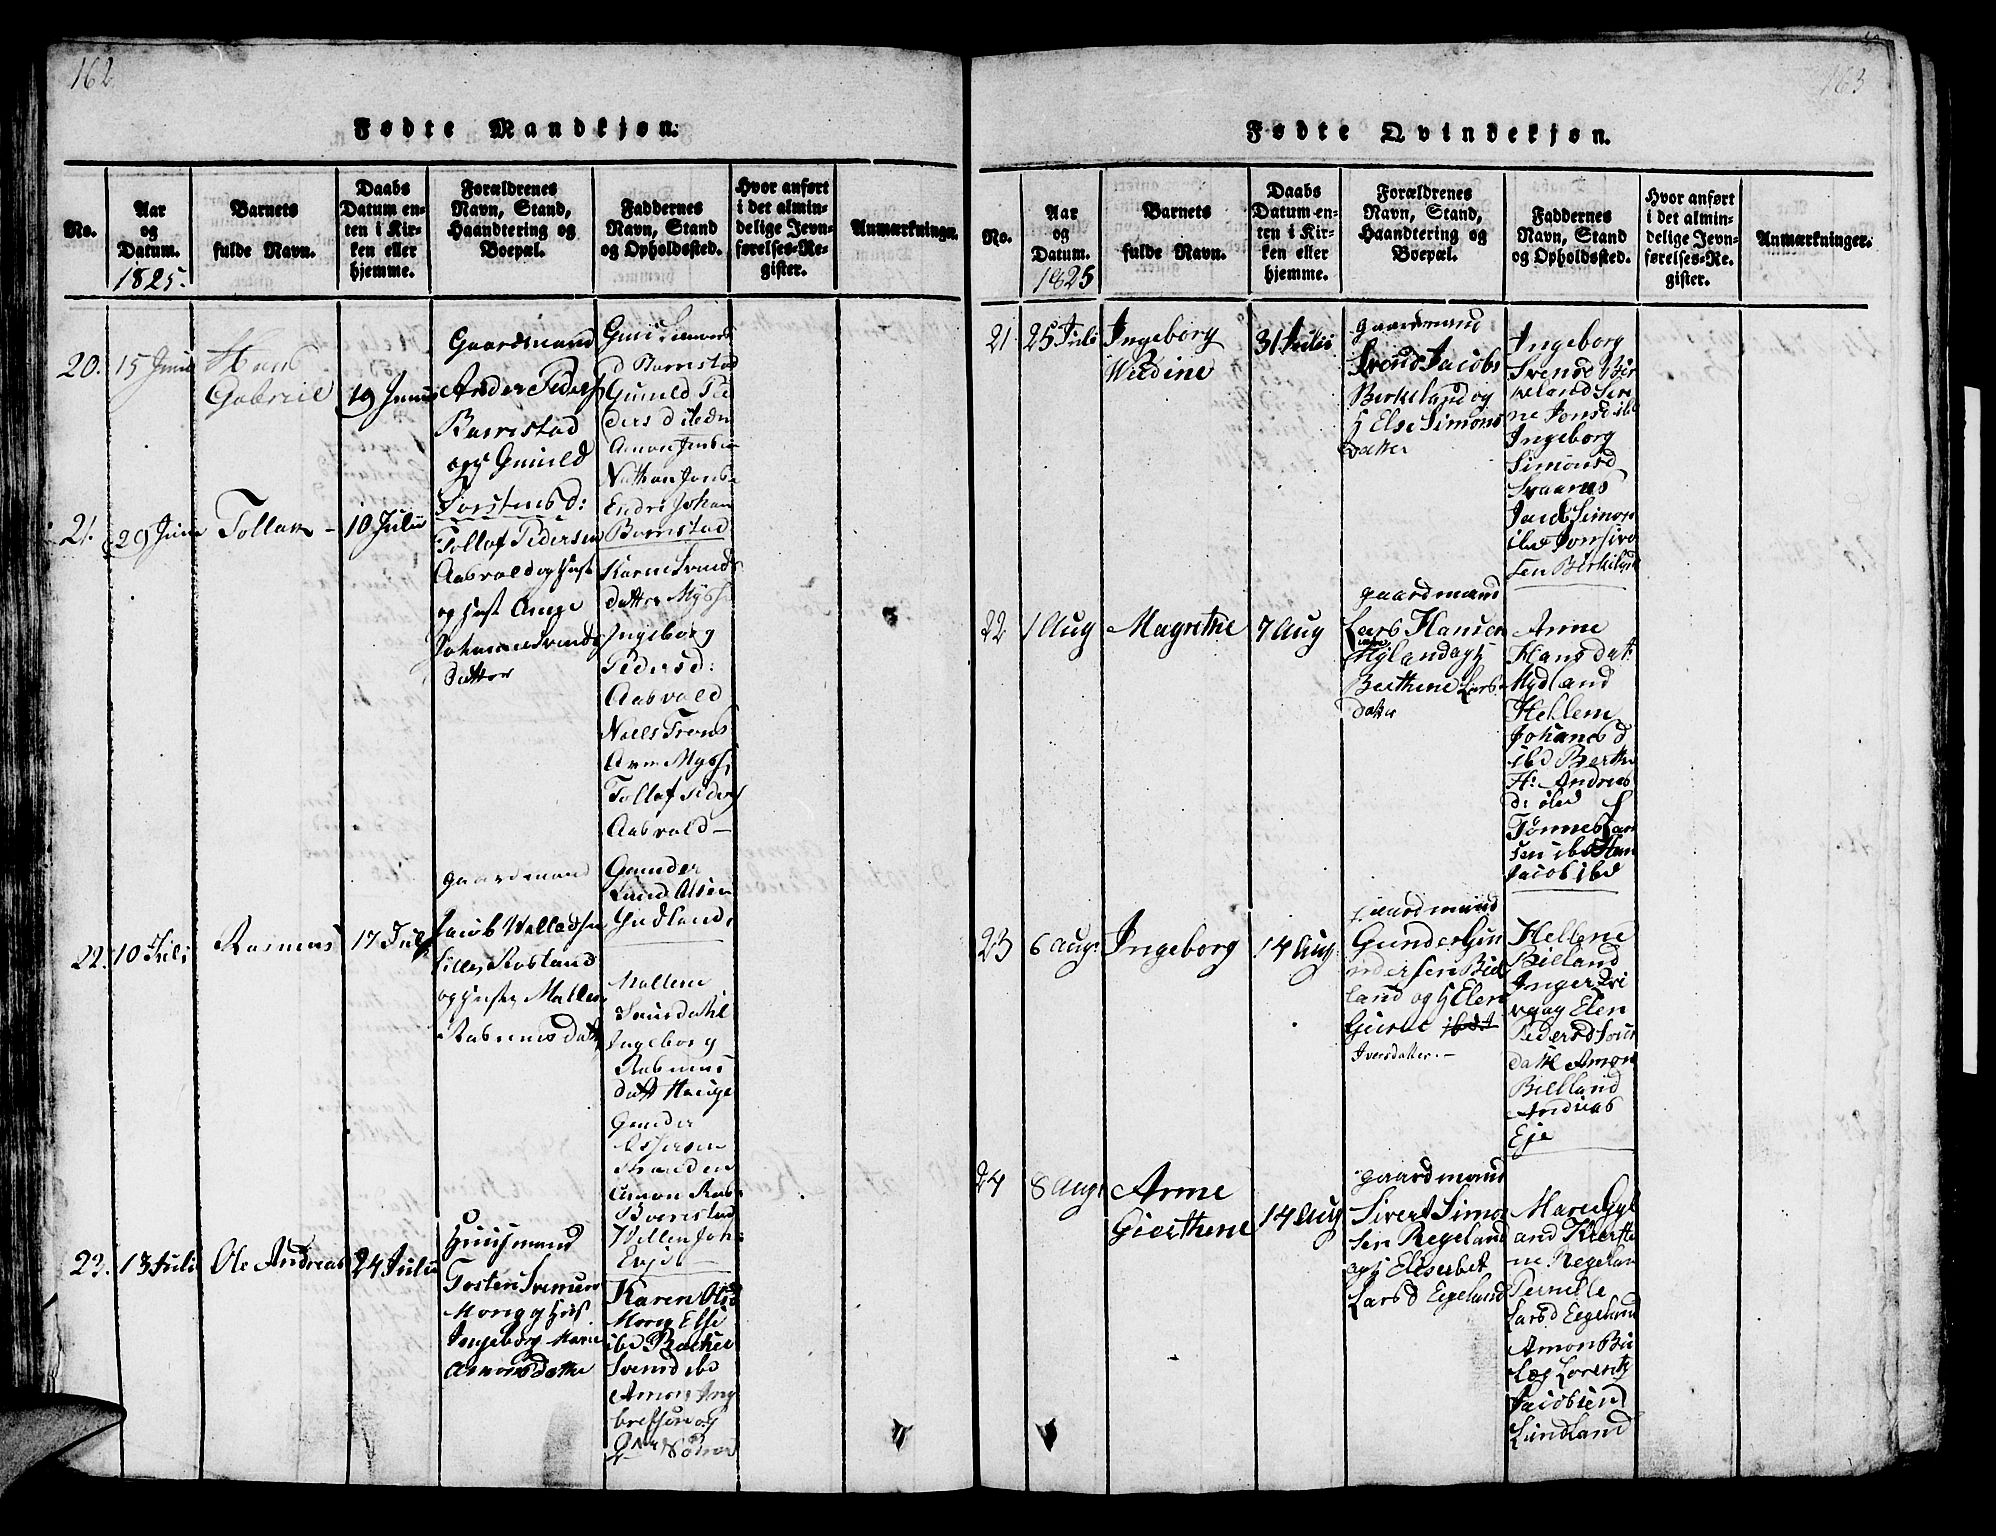 162
Fødte Mandkjøn.
No.
Aar
og
Datum.
1825.
Barnets
fulde Navn.
Daabs
Datum en-
ten i Kir-
ken eller
hjemme.
Forældrenes
Navn, Stand,
Haandtering og
Boepæl.
Faddernes
Navn, Stand
og Opholdssted.
Hvor anført
i det almin-
delige Jevn-
førelses-Re-
gister.
Anmærkninger.
20.
15 Juni
Hans
Gabriel
19 Junii
Gaardmand
Ander Peders
Barrestad
og Gunild
Torstensd:
Gunild Pe
ders d
Amon
Nathan Jons
Endre Johan
Barrestad
21.
29 Juni
Tollav
10 Julii
Tollof Pedersen
Aasvald og Hust
og Hust Aasge
Johanne Svends
datter
Karne Svends
datter Mysse
Ingeborg
Pedersd:
Aasvald
Niels Trons
Tollof Peders
Aasvald
22.
10 Juli
Rasmus
17 Juli
gaardmand
Jacob Valladsen
Lille Rosland
og Hust Mallene
Rasmus datt
Gunder
Gudland
Mallene
Suurdahl
Ingeborg
Rasmus
datt Hauge
Gunder
Assersen
Stranden
Amon Ras
Barrestad
Villen Joh
23.
13 Juli
Ole Andreas
24 Julii
Huusmand
Tosten Svenning
Mong og Hust
Ingeborg Marie
Amonsdatter
Karen Olsd
Mong Else
ibd Rachel
Svensd ibd
Amon Ing
brethsen og
163
Fødte Qvindekjøn.
No.
Aar
og
Datum.
1825
Barnets
fulde Navn.
Daabs
Datum en-
ten i Kir-
ken eller
hjemme.
Forældrenes
Navn, Stand,
Haandtering og
Boepæl.
Faddernes
Navn, Stand
og Opholdssted.
Hvor anført
i det almin-
delige Jevn-
førelses-Re-
gister.
Anmærkninger.
21
25 Juli
Ingeborg
Werdine
31 Julii
gaardmand
Svend Jacobs
Birkeland og
H Else Simons
Datter
Ingeborg
Svensd Bir
keland Sire
ne Jonsd ibd
Ingeborg
Simonsd
Svaanes
Jacob Simon
ibd Jon Siv
sen Birkeland
22
1 Aug
Magrethe
7 Aug
gaardmand
Lars Hansen
Myland og H
Berthene Lars
datter
Anne
Hansdat:
Mydland
Hellene
Johanes d
ibd Berthe
H: Andreas
d: ibd
Tønnes Lar
sen ibd Han
Jacob ibd
23
6 Aug:
Ingeborg
14 Aug
gaardmand
Gunder Gun
dersen Bil
land og H Elen
Gurine ibd
Iversdatter.
Hellene
Billand
Inger Qvi
vaag Elen
Pedersd Suur
dahl Amon
Billand
Andreas
Eje
24
8 Aug
Anne
Gierthene
14 Aug
gaardmand
Sivert Simon
sen Regeland
og H Elisebet
Lars d Egeland
Maren Gyl
and Kierste
ne Regelan
Pernille
Larsd Egeland
Amon Bir
Lorentz
Jacobsen
Lundland